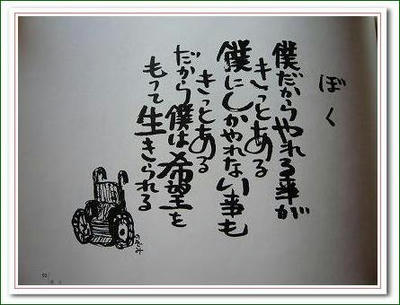 ぼく
僕だからやれる事が
きっとある
僕にしかやれない事も
きっとある
だから僕は希望を
もって生きられる